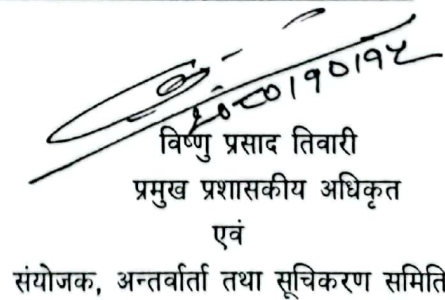 २०८०।१०।१५
विष्णु प्रसाद तिवारी
प्रमुख प्रशासकीय अधिकृत
एवं
संयोजक, अन्तर्वार्ता तथा सूचिकरण समिति